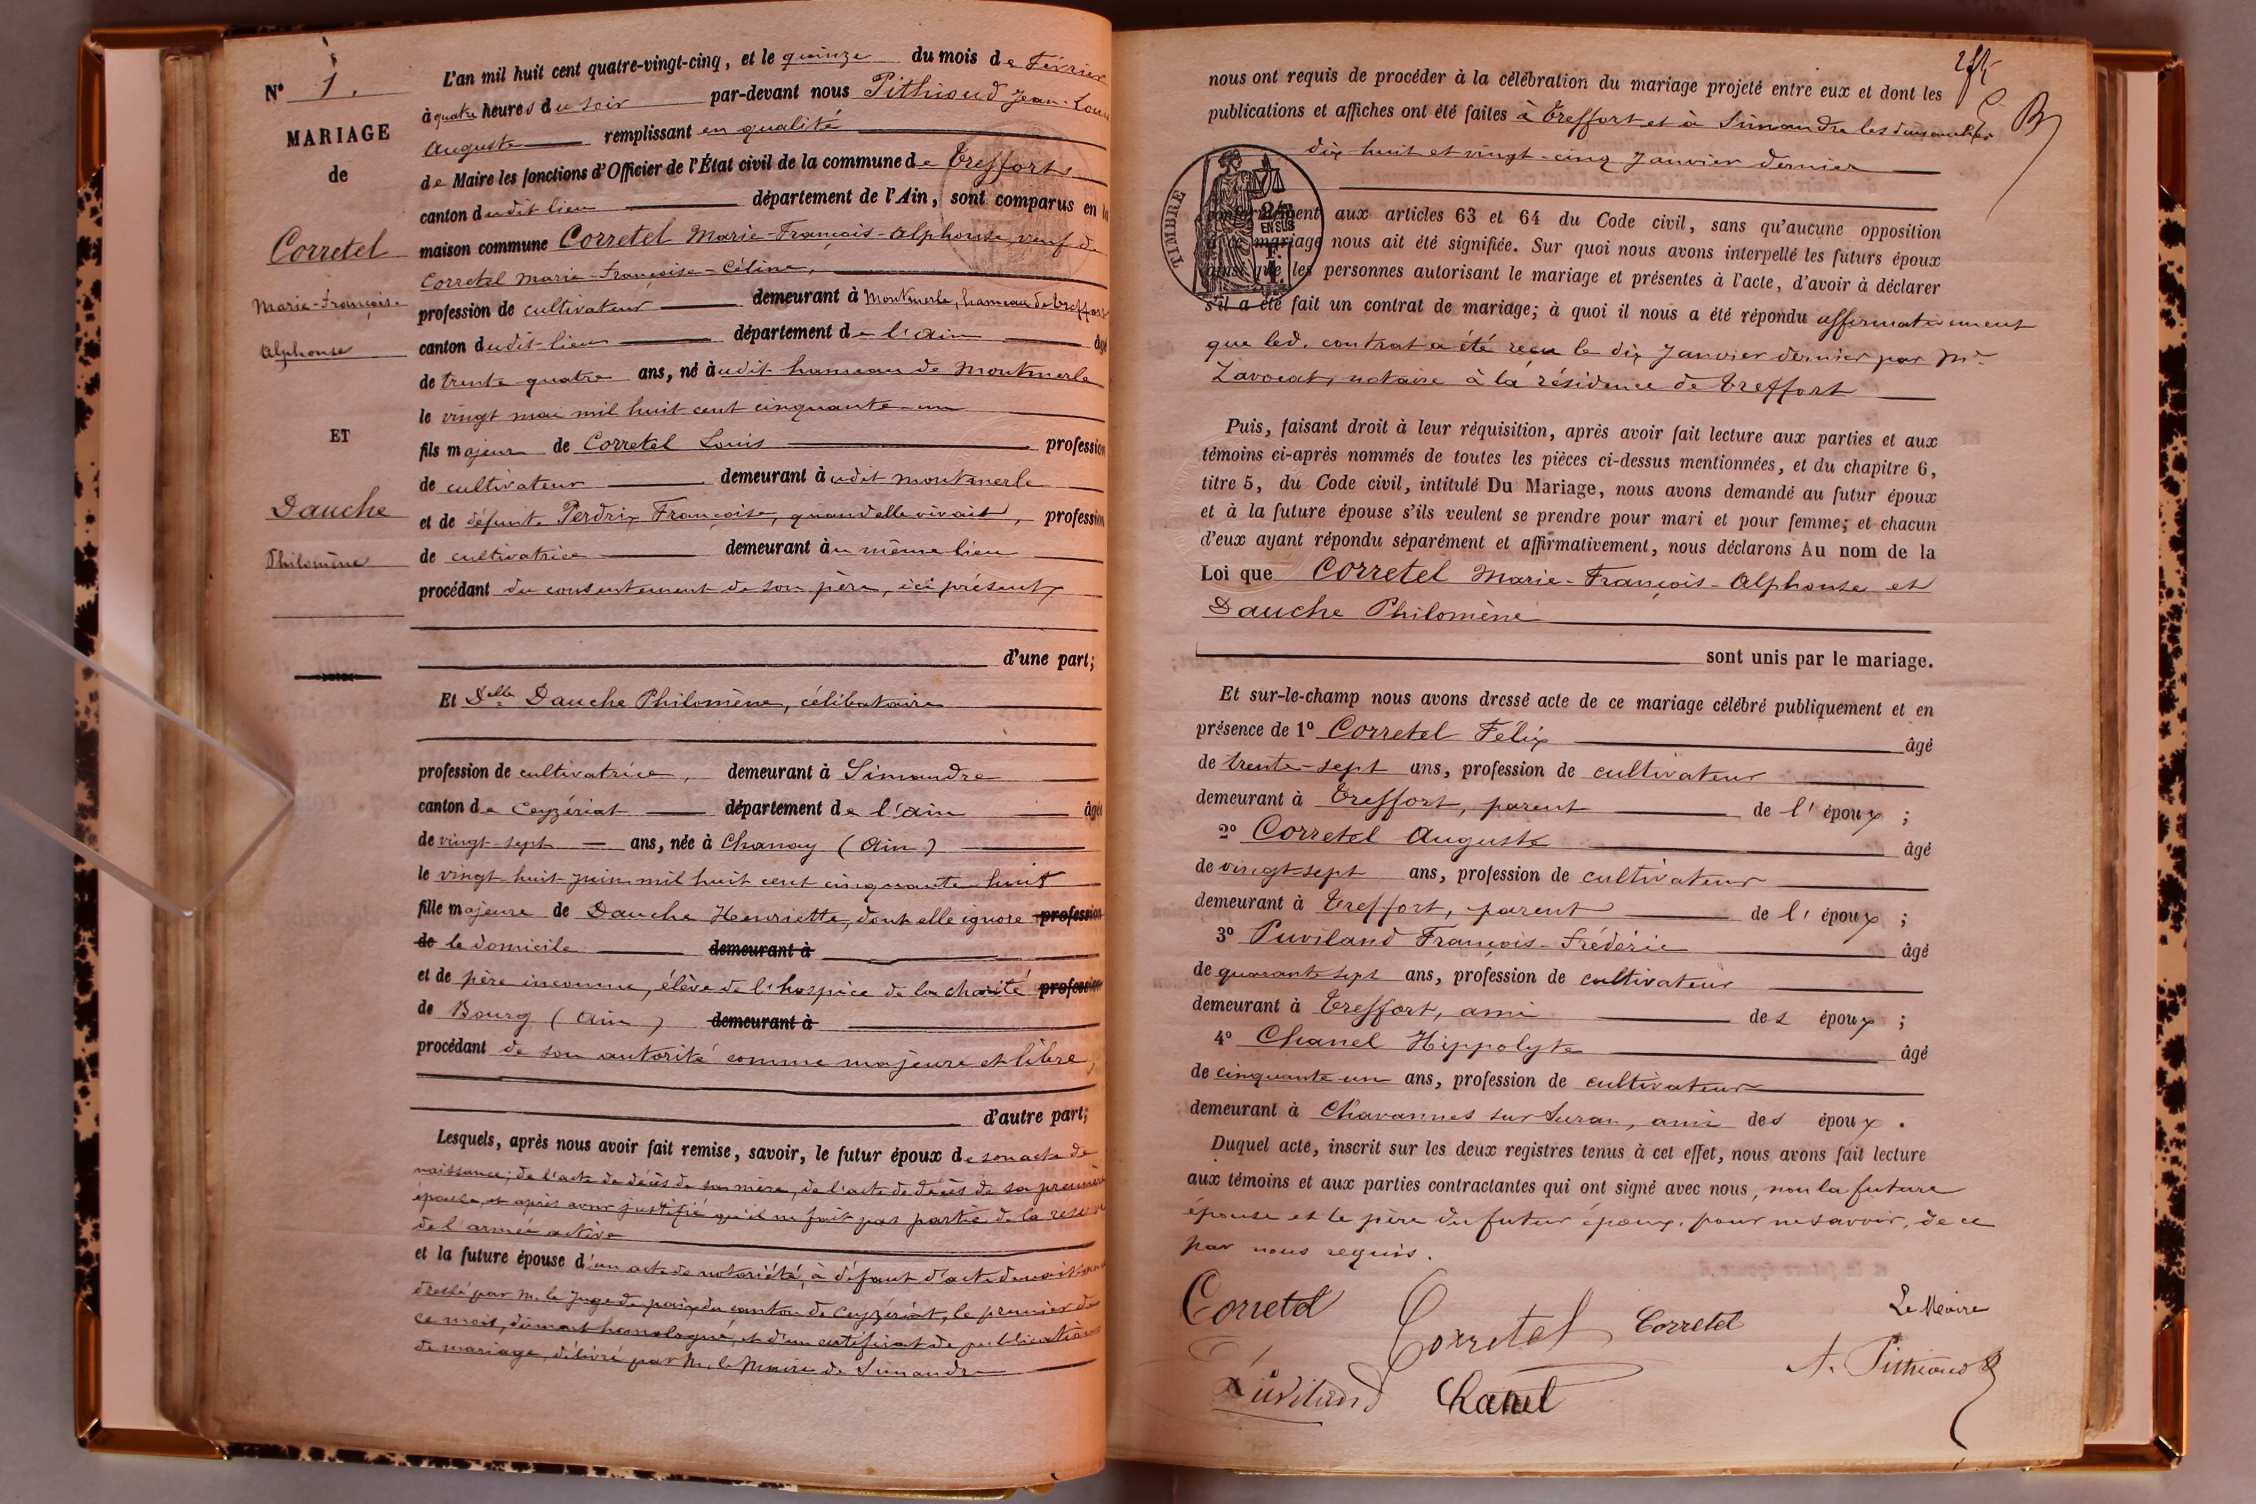 N° 1.
MARIAGE
de
Corretel
Marie-François-
Alphonse
ET
Dauche
Philomène
L'an mil huit cent quatre-vingt-cinq, et le quinze du mois de Février
à quatre heures du soir par-devant nous Pithioud Jean-Louis
Auguste remplissant en qualité
de Maire les fonctions d'Officier de l'État civil de la commune de Treffort
canton dudit lieu département de l'Ain, sont comparus en la
maison commune Corretel Marie-François-Alphonse, veuf de
Corretel Marie-Françoise-Céline,
profession de cultivateur demeurant à Montmerle, hameau de Treffort
canton dudit lieu département de l'Ain âgé
de trente quatre ans, né audit hameau de Montmerle
le vingt mai mil huit cent cinquante-un
fils majeur de Corretel Louis profession
de cultivateur demeurant audit Montmerle
et de défunte Perdrix Françoise, quand elle vivait, profession
de cultivatrice demeurant au même lieu
procédant du consentement de son père, ici présent,
d'une part;
Et Delle Dauche Philomène, célibataire
profession de cultivatrice, demeurant à Simandre
canton de Ceyzériat département de l'Ain âgée
de vingt-sept ans, née à Chanay (Ain)
le vingt-huit juin mil huit cent cinquante-huit
fille majeure de Dauche Henriette, dont elle ignore profession
de le domicile demeurant à
et de père inconnu, élève de l'hospice de la charité profession
de Bourg (Ain) demeurant à
procédant de son autorité comme majeure et libre,
d'autre part;
Lesquels, après nous avoir fait remise, savoir, le futur époux de son acte de
naissance; de l'acte de décès de sa mère, de l'acte de décès de sa première
épouse, et après avoir justifié qu'il ne fait pas partie de la réserve
de l'armée active
et la future épouse d'un acte de notoriété, à défaut d'acte de naissance
dressé par M. le Juge de paix du canton de Ceyzériat, le premier de
ce mois, dûment homologué, et d'un certificat de publications
de mariage, délivré par M. le Maire de Simandre
nous ont requis de procéder à la célébration du mariage projeté entre eux et dont les
publications et affiches ont été faites à Treffort et à Simandre les dimanches
dix-huit et vingt-cinq Janvier dernier
TIMBRE
conformément aux articles 63 et 64 du Code civil, sans qu'aucune opposition
à ce mariage nous ait été signifiée. Sur quoi nous avons interpellé les futurs époux
ainsi que les personnes autorisant le mariage et présentes à l'acte, d'avoir à déclarer
s'il a été fait un contrat de mariage; à quoi il nous a été répondu affirmativement
que led. contrat a été reçu le dix Janvier dernier par Me
Lavocat, notaire à la résidence de Treffort
Puis, faisant droit à leur réquisition, après avoir fait lecture aux parties et aux
témoins ci-après nommés de toutes les pièces ci-dessus mentionnées, et du chapitre 6,
titre 5, du Code civil, intitulé Du Mariage, nous avons demandé au futur époux
et à la future épouse s'ils veulent se prendre pour mari et pour femme; et chacun
d'eux ayant répondu séparément et affirmativement, nous déclarons Au nom de la
Loi que Corretel Marie-François-Alphonse et
Dauche Philomène
sont unis par le mariage.
Et sur-le-champ nous avons dressé acte de ce mariage célébré publiquement et en
présence de 1° Corretel Félix âgé
de trente-sept ans, profession de cultivateur
demeurant à Treffort, parent de l'époux;
2° Corretel Auguste âgé
de vingt-sept ans, profession de cultivateur
demeurant à Treffort, parent de l'époux;
3° Puviland François-Frédéric âgé
de quarante-sept ans, profession de cultivateur
demeurant à Treffort, ami des époux;
4° Chanel Hippolyte âgé
de cinquante-un ans, profession de cultivateur
demeurant à Chavannes sur Suran, ami des époux.
Duquel acte, inscrit sur les deux registres tenus à cet effet, nous avons fait lecture
aux témoins et aux parties contractantes qui ont signé avec nous, non la future
épouse et le père du futur époux, pour ne savoir, de ce
par nous requis.
Corretel Corretel Corretel Le Maire
Puviland Chanel A. Pithioud